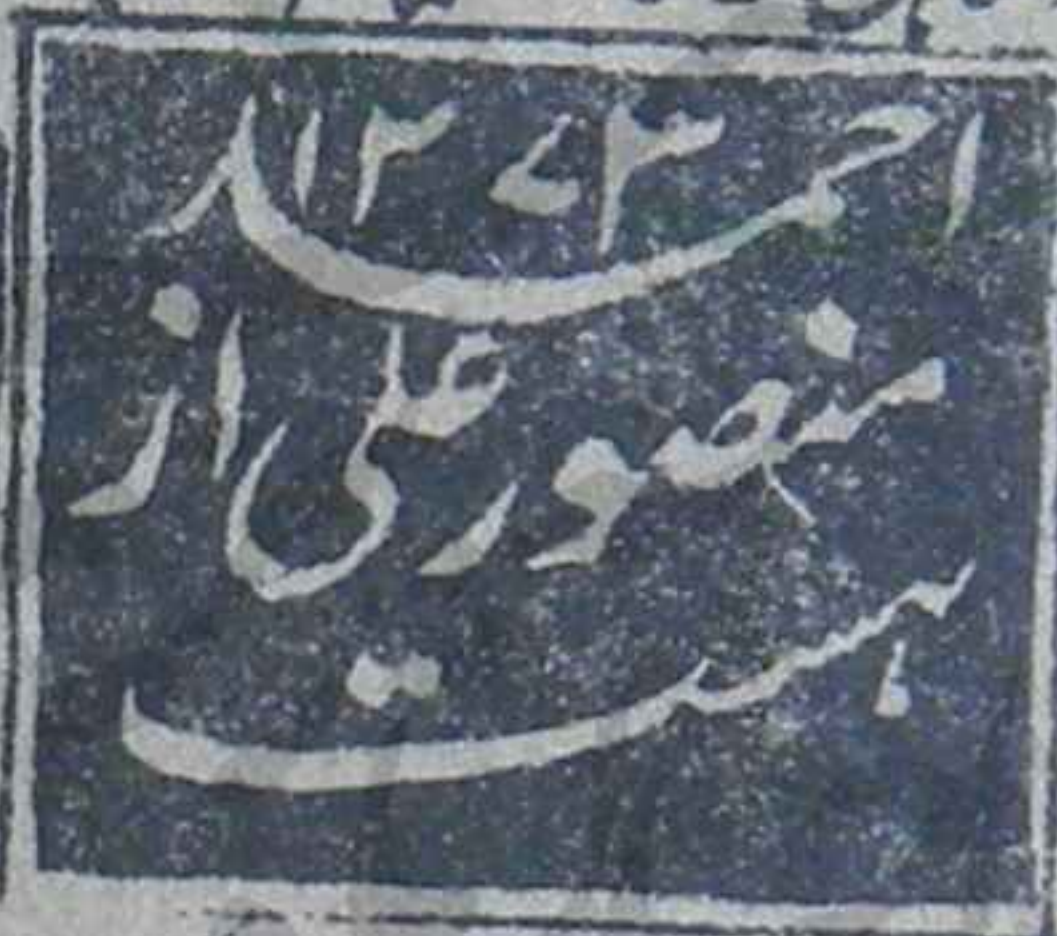 احمد ۱۲۷۳
منصور علی از
ہست